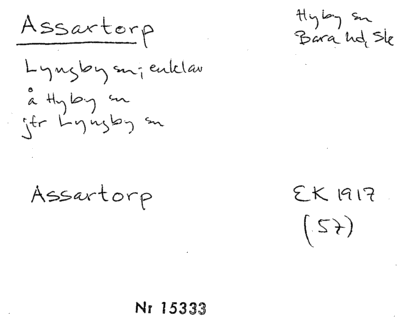 Assartorp
Hyby sn
Bara hd, Sk
Lyngby sn; enklav
å Hyby sn
jfr Lyngby sn
Assartorp
EK 1917
(57)
Nr 15333